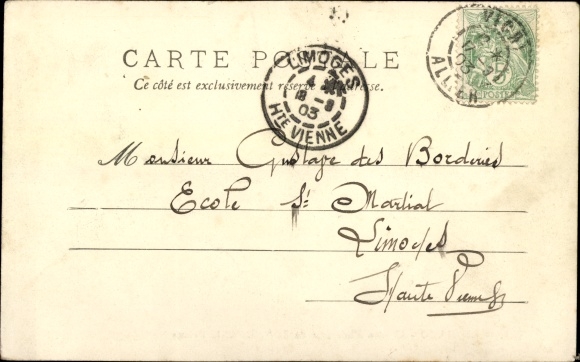 CARTE POSTALE
Ce côté est exclusivement réservé à l'adresse.
LIMOGES
4
18 -8
03
HTE VIENNE
VICHY
ALLIER
POSTES
Monsieur Gustave des Borderies
Ecole St Martial
Limoges
Haute Vienne